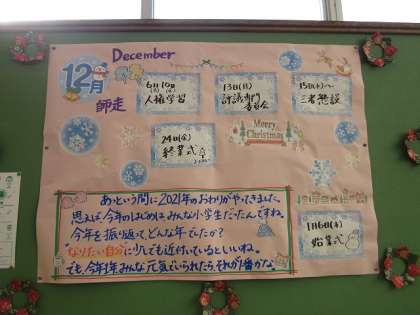 December
12月
師走
6日10日
人権学習
13日(月)
評議専門
委員会
15日(水)〜
三者懇談
24日(金)
終業式
Merry
Christmas
あっという間に2021年のおわりがやってきました。
思えば、今年のはじめは、みんな小学生だったんですね。
今年を振り返って、どんな年でしたか?
"なりたい自分"に少しでも近付いているといいね。
でも、今年1年みんな元気でいられたら、それが1番かな。
1月6日(木)
始業式